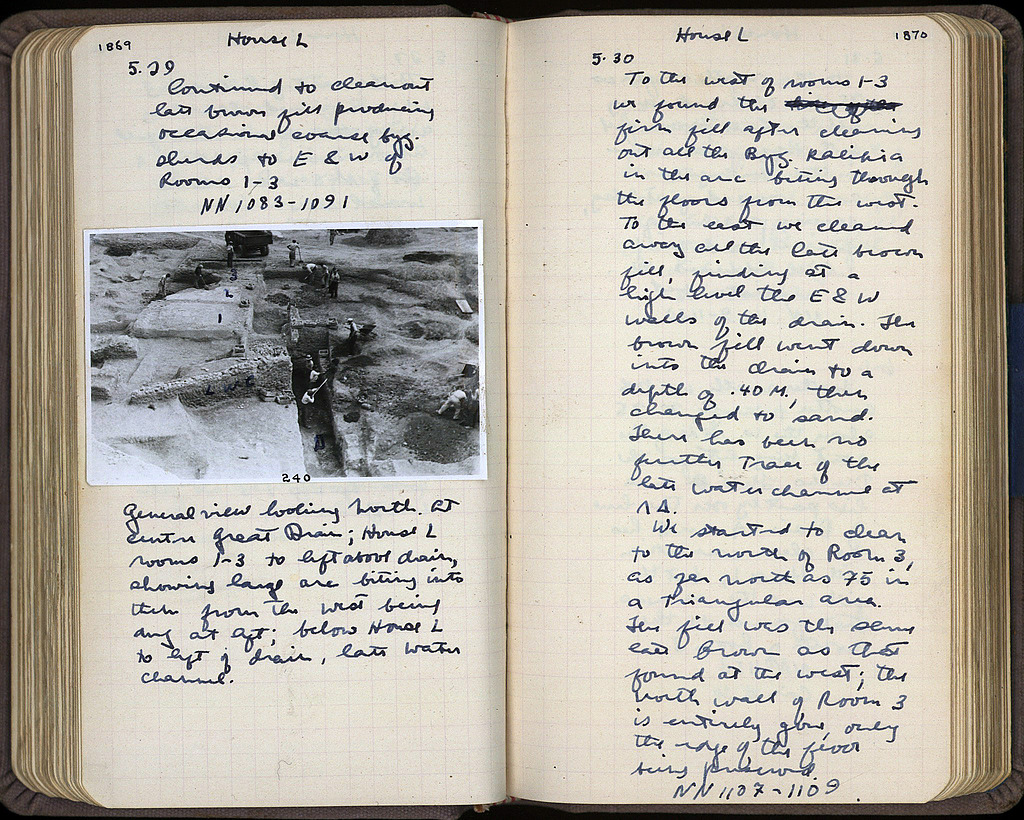 1869
House L
5.29
Continued to clean out
late brown fill producing
occasional coarse byz.
sherds to E & W of
Rooms 1-3
NN 1083-1091
240
General view looking north. At
centre Great Drain; House L
rooms 1-3 to left above drain,
showing large arc biting into
them from the west being
dug at left; below House L
to left of drain, late water
channel.
House L
1870
5.30
To the west of rooms 1-3
we found the
firm fill after cleaning
out all the Byz.
in the arc biting through
the floors from the west.
To the east we cleaned
away all the late brown
fill, finding at a
high level the E & W
walls of the drain. The
brown fill went down
into the drain to a
depth of .40 M., then
changed to sand.
There has been no
further trace of the
late water channel at
1A.
We started to clear
to the north of Room 3,
as far north as 75 in
a triangular area.
The fill was the same
late brown as that
found at the west; the
north wall of Room 3
is entirely gone, only
the edge of the floor
being preserved.
NN 1107-1109